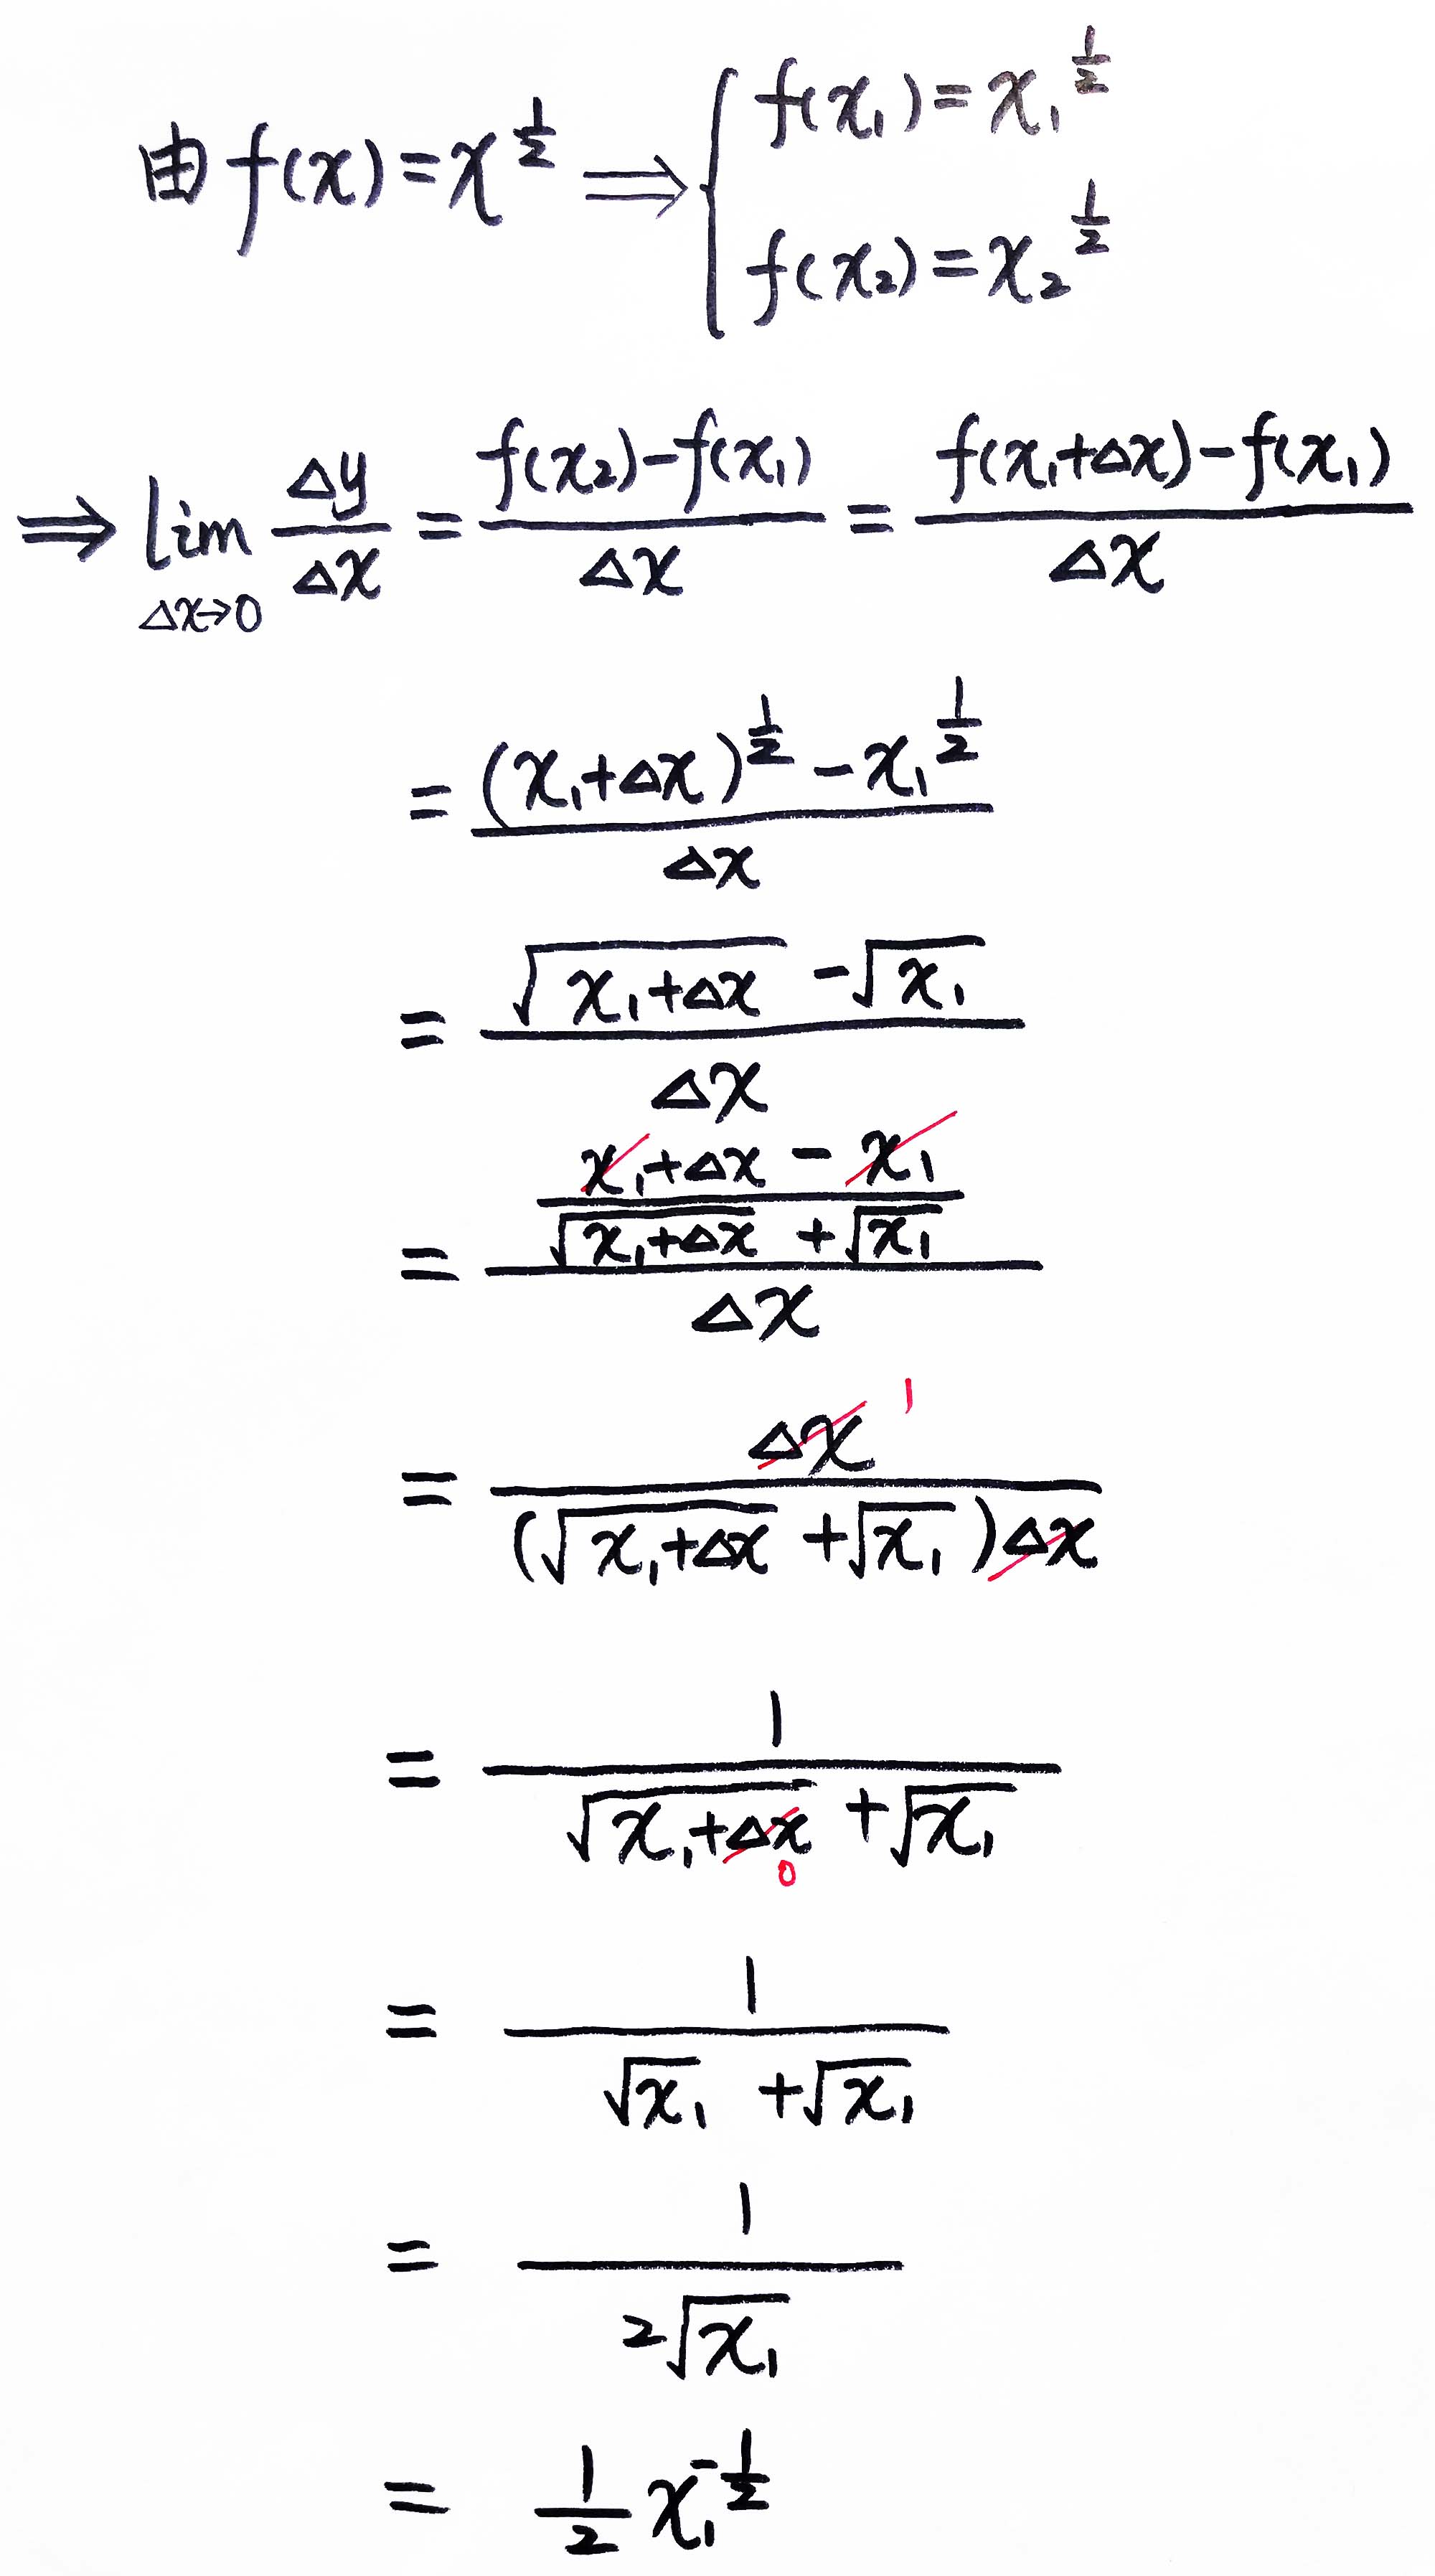 由 f(x)=x^{\frac{1}{2}} ⟹ { f(x₁)=x₁^{\frac{1}{2}}
f(x₂)=x₂^{\frac{1}{2}}
⟹ \lim_{Δx→0} \frac{Δy}{Δx} = \frac{f(x₂)-f(x₁)}{Δx} = \frac{f(x₁+Δx)-f(x₁)}{Δx}
= \frac{(x₁+Δx)^{\frac{1}{2}}-x₁^{\frac{1}{2}}}{Δx}
= \frac{\sqrt{x₁+Δx}-\sqrt{x₁}}{Δx}
= \frac{\frac{x₁+Δx-x₁}{\sqrt{x₁+Δx}+\sqrt{x₁}}}{Δx}
= \frac{Δx 1}{(\sqrt{x₁+Δx}+\sqrt{x₁})Δx}
= \frac{1}{\sqrt{x₁+Δx 0}+\sqrt{x₁}}
= \frac{1}{\sqrt{x₁}+\sqrt{x₁}}
= \frac{1}{2\sqrt{x₁}}
= \frac{1}{2}x₁^{-\frac{1}{2}}